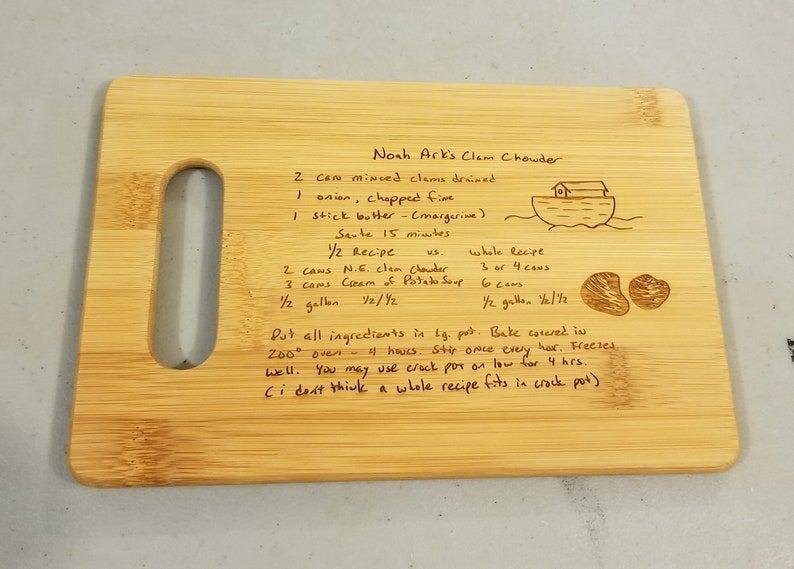 Noah Ark's Clam Chowder
2 can minced clams drained
1 onion, chopped fine
1 stick butter - (margerine)
Saute 15 minutes
1/2 Recipe vs. whole Recipe
2 cans N.E. clam chowder 3 or 4 cans
3 cans Cream of Potato Soup 6 cans
1/2 gallon 1/2/1/2 1/2 gallon 1/2/1/2
Put all ingredients in lg. pot. Bake covered in
200° oven - 4 hours. Stir once every hour. Freezes
well. You may use crock pot on low for 4 hrs.
(i don't think a whole recipe fits in crock pot)